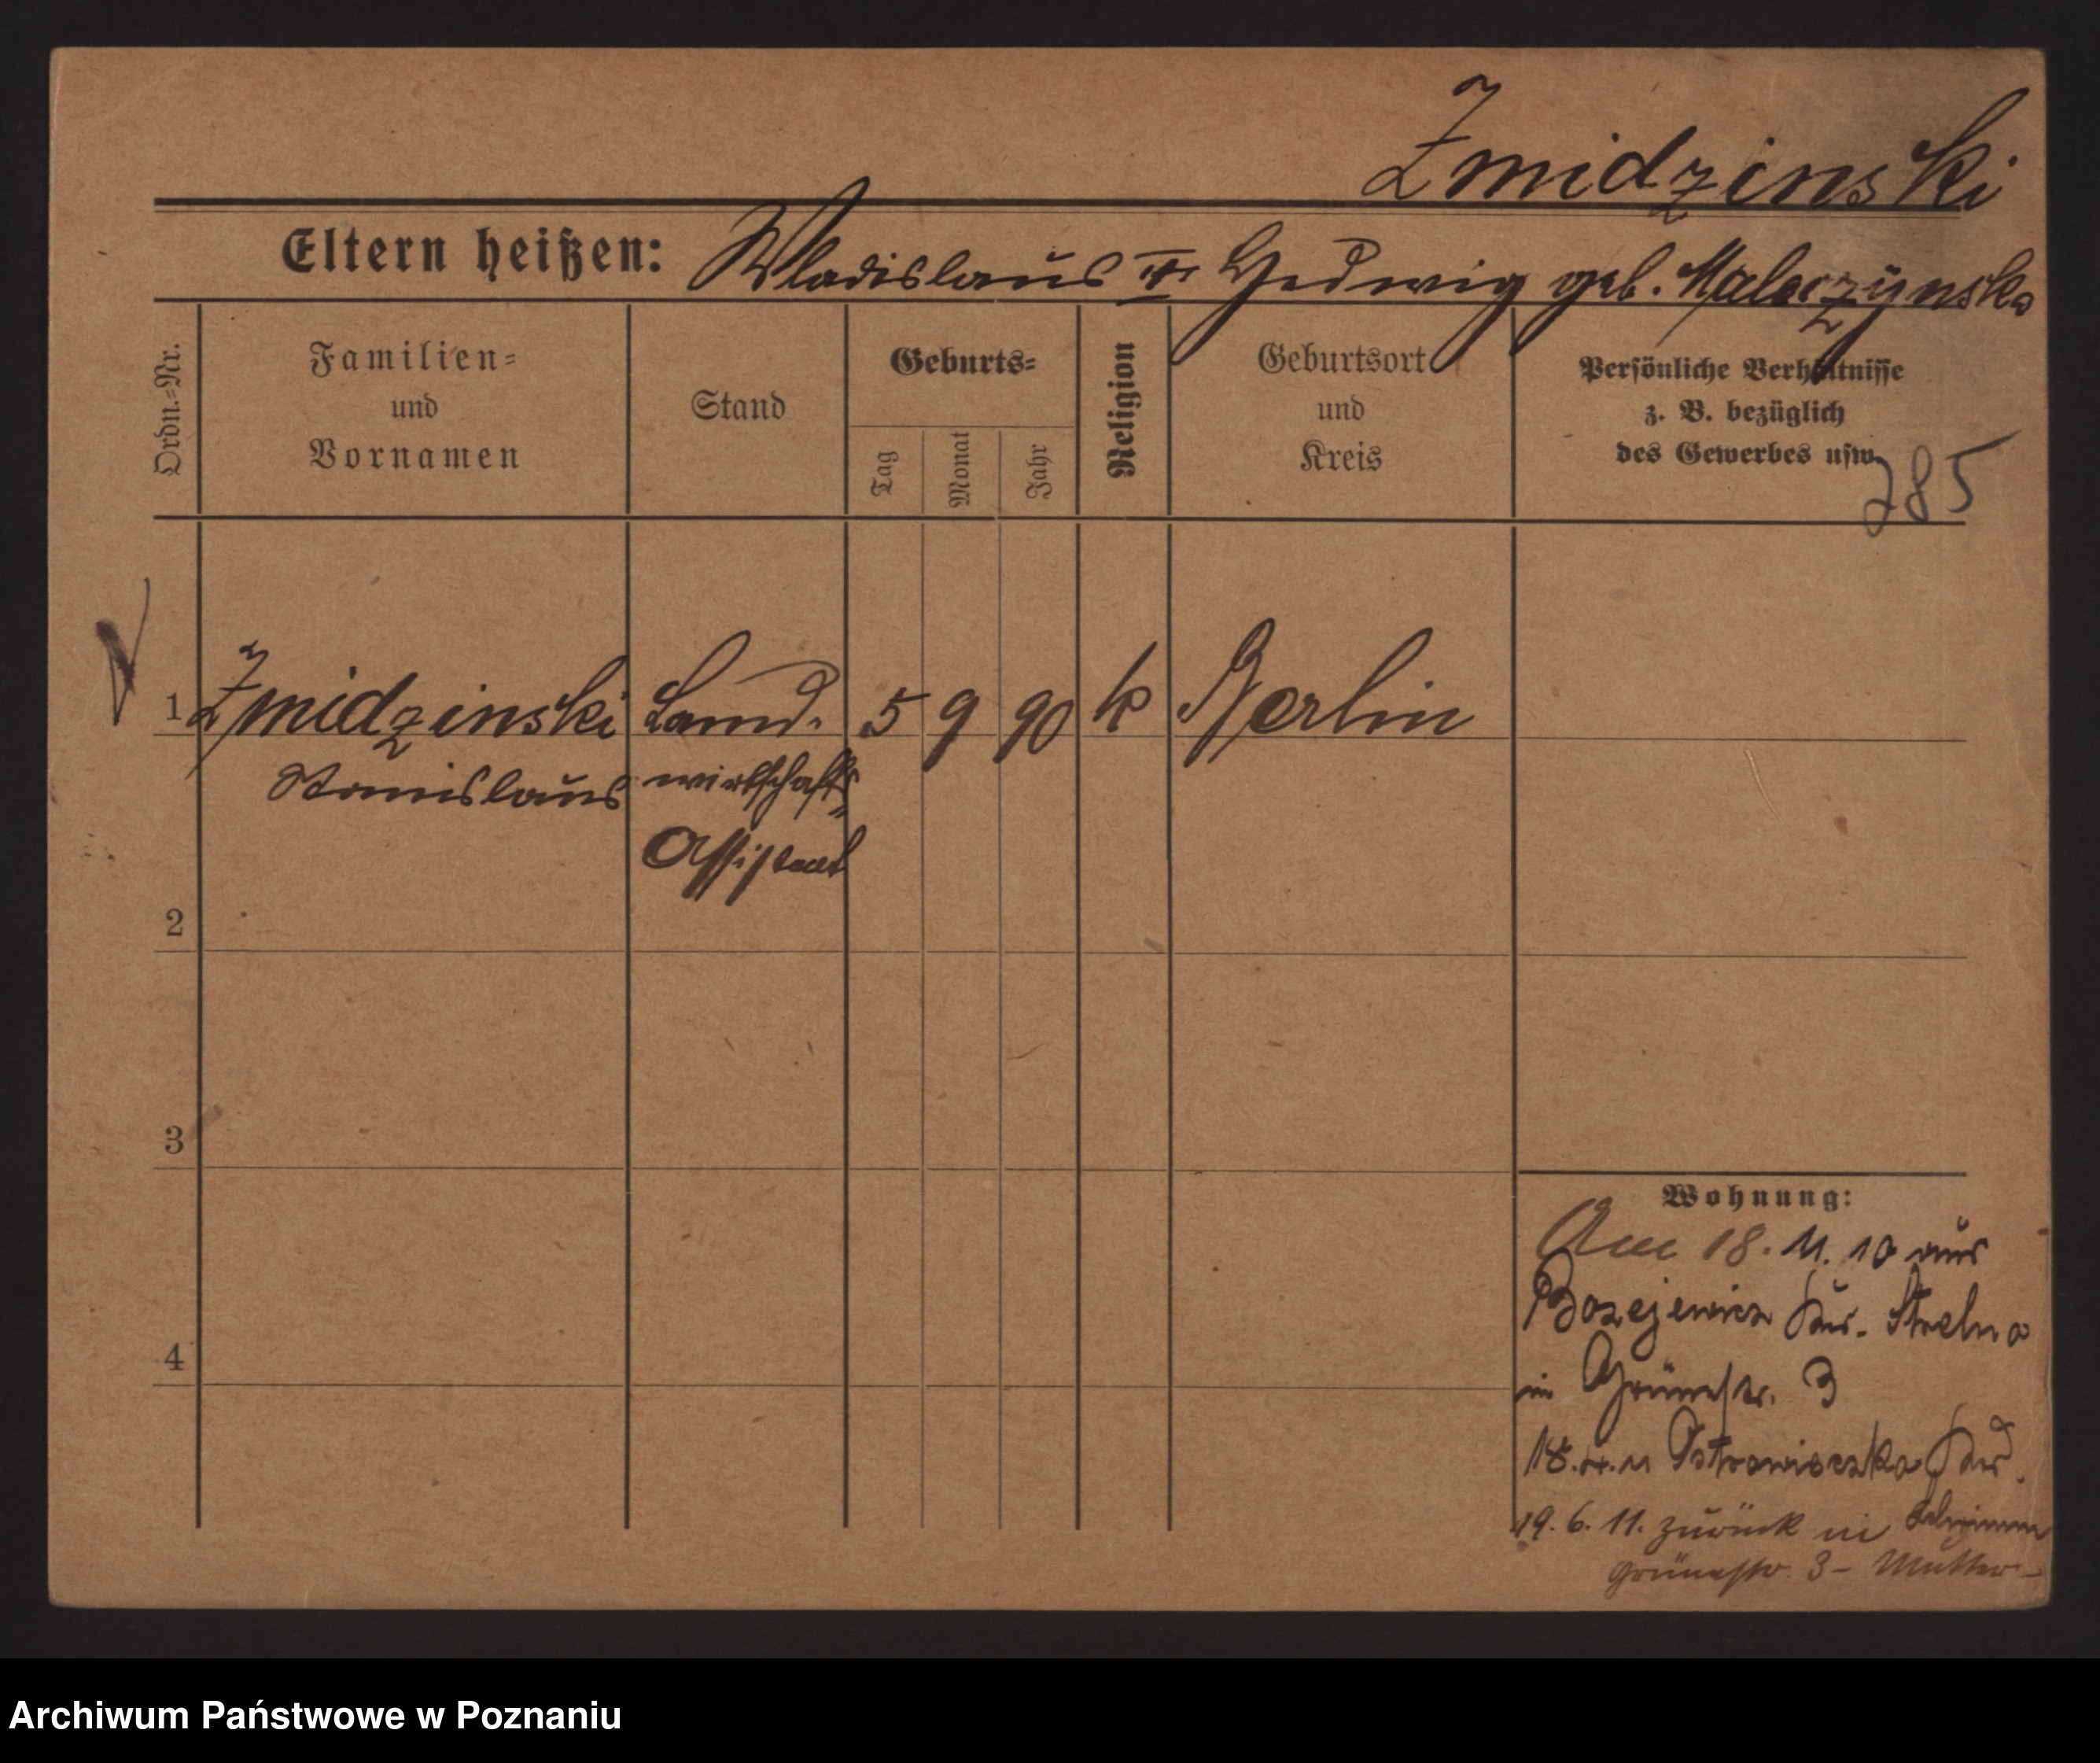 Zmidzinski
Eltern heißen: Wladislaus u. Hedwig geb. Maleczynska
Ordn.-Nr.
Familien-
und
Vornamen
Stand
Geburts-
Tag
Monat
Jahr
Religion
Geburtsort
und
Kreis
Persönliche Verhältnisse
z. B. bezüglich
des Gewerbes usw.
285
1 Zmidzinski Land- 5 9 90 k Berlin
Stanislaus wirtschafts-
Assistent
2
3
4
Wohnung:
Am 18. 11. 10 aus
Bozejewice Strelno
in Grünestr. 3
18. 11 Ostrowieczko
19. 6. 11. zurück in
Grünestr. 3 - Mutter -
Archiwum Państwowe w Poznaniu